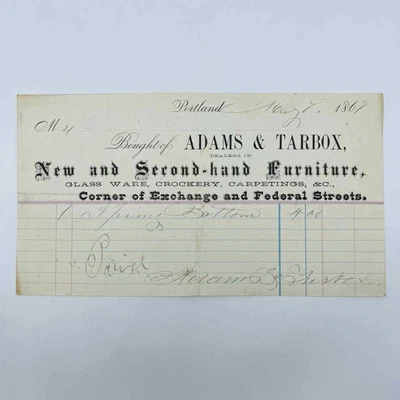 Portland May 7. 1869
M
Bought of ADAMS & TARBOX,
DEALERS IN
New and Second-hand Furniture,
GLASS WARE, CROCKERY, CARPETINGS, &C.,
Corner of Exchange and Federal Streets.
1 Spring Bottom 4.00
Paid
Adams & Tarbox